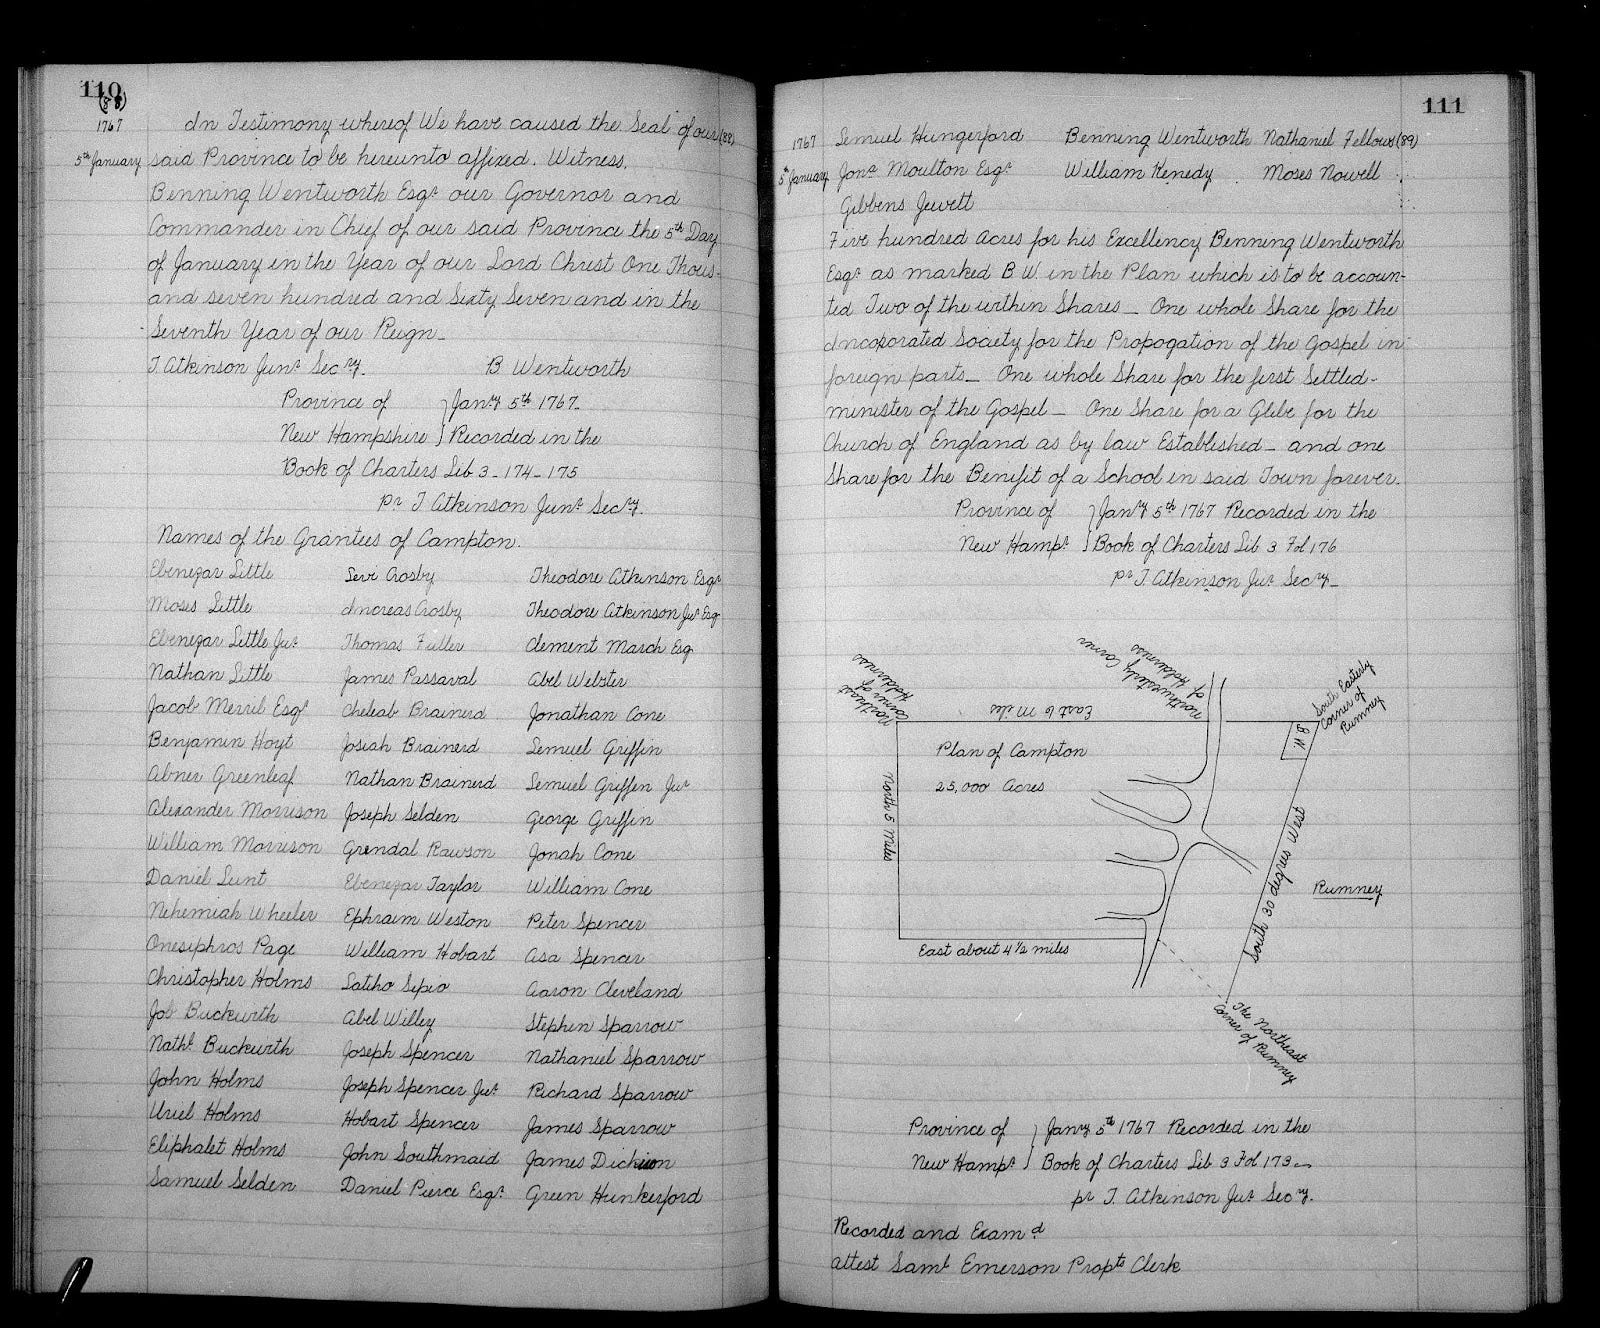 110
(88)
1767
5th January
In Testimony whereof We have caused the Seal of our (88)
said Province to be hereunto affixed. Witness,
Benning Wentworth Esqr our Governor and
Commander in Chief of our said Province the 5th Day
of January in the Year of our Lord Christ One Thous-
and seven hundred and Sixty Seven and in the
Seventh Year of our Reign_
T. Atkinson Junr Secry. B Wentworth
Province of } Janry 5th 1767_
New Hampshire } Recorded in the
Book of Charters Lib 3_174_175
pr T Atkinson Junr Secry.
Names of the Grantees of Campton.
Ebenezar Little Levi Crosby Theodore Atkinson Esqr
Moses Little Increas Crosby Theodore Atkinson Jur Esq
Ebenezar Little Jur Thomas Fuller Clement March Esq
Nathan Little James Passaval Abel Webster
Jacob Merril Esqr Cheleab Brainerd Jonathan Cone
Benjamin Hoyt Josiah Brainerd Lemuel Griffin
Abner Greenleaf Nathan Brainerd Lemuel Griffen Jur
Alexander Morrison Joseph Selden George Griffin
William Morrison Grendal Rawson Jonah Cone
Daniel Lunt Ebenezar Taylor William Cone
Nehemiah Wheeler Ephraim Weston Peter Spencer
Onesiphros Page William Hobart Asa Spencer
Christopher Holms Latiho Sepio Aaron Cleveland
Job Buckwith Abel Willey Stephen Sparrow
Nathl Buckwith Joseph Spencer Nathaniel Sparrow
John Holms Joseph Spencer Jur Richard Sparrow
Uriel Holms Hobart Spencer James Sparrow
Eliphalet Holms John Southmaid James Dickson
Samuel Selden Daniel Pierce Esqr Green Hunkerford
111
1767
5th January
Lemuel Hungerford Benning Wentworth Nathaniel Fellows (89)
Jonr Moulton Esqr William Kenedy Moses Nowell
Gibbens Jewett
Five hundred Acres for his Excellency Benning Wentworth
Esqr as marked B W. in the Plan which is to be accoun-
ted Two of the within Shares_ One whole Share for the
Incorporated Society for the Propogation of the Gospel in
foreign parts_ One whole Share for the first Settled-
minister of the Gospel_ One Share for a Glebe for the
Church of England as by law Established_ and one
Share for the Benifit of a School in said Town forever.
Province of } Janry 5th 1767 Recorded in the
New Hampr } Book of Charters Lib 3 Fol 176
pr T Atkinson Jur Secry_
Northeast
Corner of
Holderness
East 6 Miles
Northwesterly Corner
of Holderness
South Easterly
Corner of
Rumney
B. W.
Plan of Campton
25,000 Acres
North 5 Miles
South 30 degrees West
Rumney
East about 4 1/2 miles
The Northeast
Corner of Rumney
Province of } Janry 5th 1767 Recorded in the
New Hampr } Book of Charters Lib 3 Fol 173_
pr T. Atkinson Jur Secry.
Recorded and Examd
attest Saml Emerson Proprs Clerk